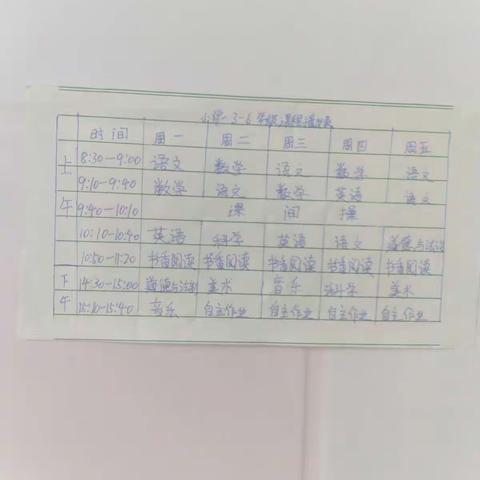 小学3-6年级课程清单表
时间 周一 周二 周三 周四 周五
上午 8:30-9:00 语文 数学 语文 数学 语文
9:10-9:40 数学 语文 数学 英语 语文
9:40-10:10 课间操
10:10-10:40 英语 科学 英语 语文 道德与法治
10:50-11:20 书香阅读 书香阅读 书香阅读 书香阅读 书香阅读
下午 14:30-15:00 道德与法制 美术 音乐 科学 美术
15:10-15:40 音乐 自主作业 自主作业 自主作业 自主作业